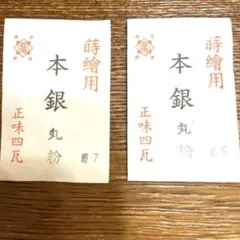 蒔繪用
本銀丸粉
正味四瓦
7
蒔繪用
本銀丸粉
正味四瓦
5